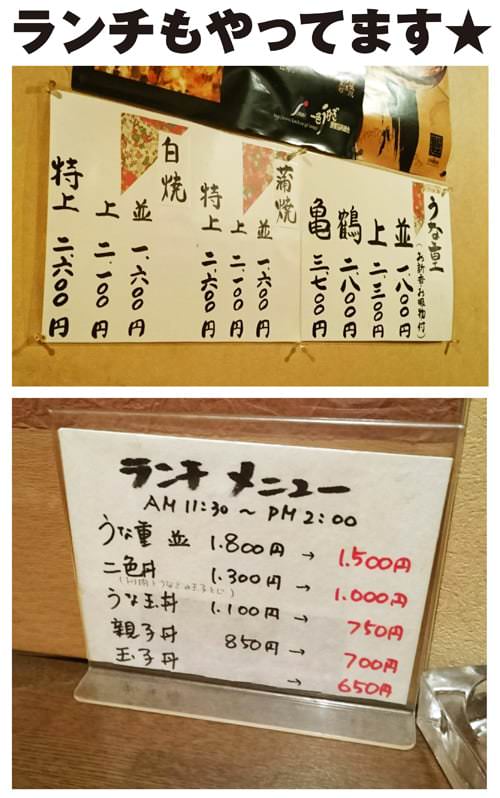 ランチもやってます★
うな重
(お新香お吸物付)
並 一、八〇〇円
上 二、三〇〇円
鶴 二、八〇〇円
亀 三、七〇〇円
蒲焼
並 一、六〇〇円
上 二、一〇〇円
特上 二、六〇〇円
白焼
並 一、六〇〇円
上 二、一〇〇円
特上 二、六〇〇円
ランチ メニュー
AM 11:30 ～ PM 2:00
うな重 並 1.800円 → 1.500円
二色丼 1.300円 → 1.000円
うな玉丼 1.100円 → 750円
親子丼 850円 → 700円
玉子丼 → 650円